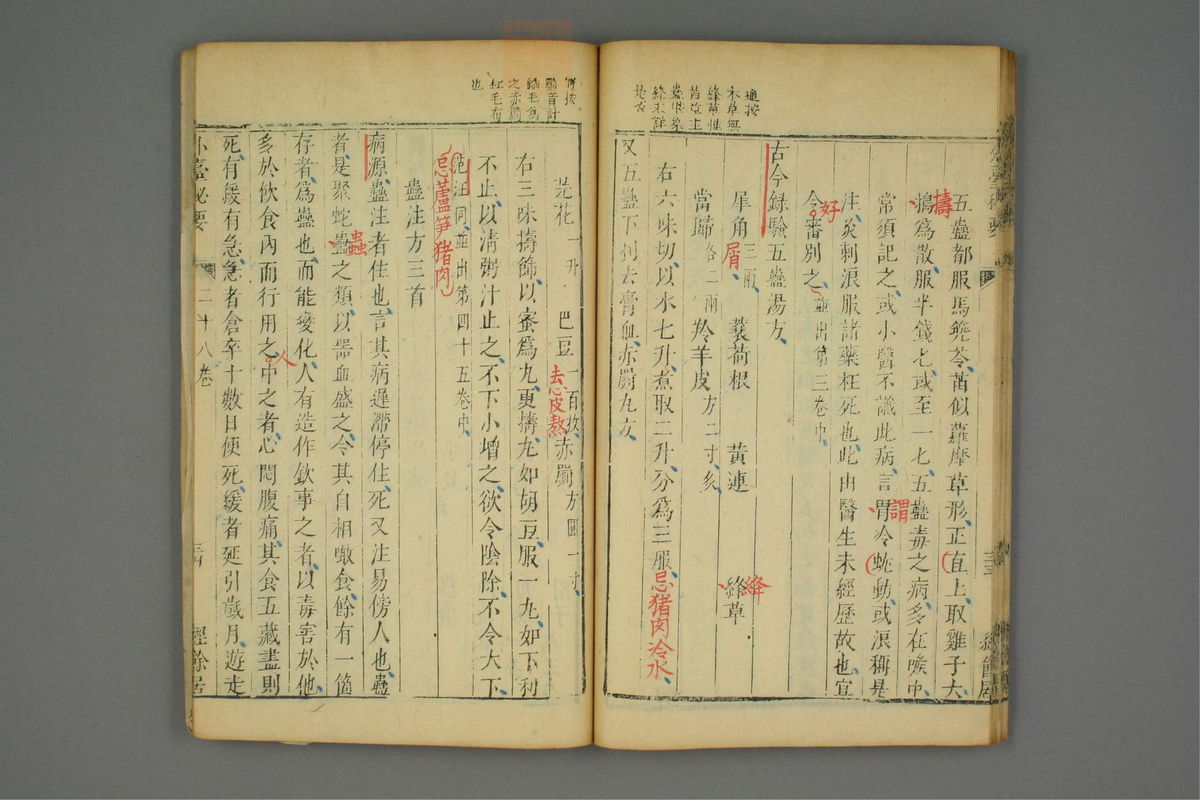 通按
本草無
絳草惟
茜草主
蠱此染
絳未詳
是否
五蠱都服馬兜苓苗似蘿摩草形正直上取雞子大
搗爲散服半錢匕或至一匕五蠱毒之病多在喉中
擣
常須記之或小醫不識此病言胃冷蚘動或浪稱是
謂
注灸刺浪服諸藥枉死也此由醫生未經歷故也宜
令審別之並出第三卷中
好
古今録驗五蠱湯方
犀角三兩 蘘荷根 黃連 絳草
屑
絳
當歸各二兩 羚羊皮方二寸炙
右六味切以水七升煮取二升分爲三服忌猪肉冷水
又五蠱下刿去膏血赤罽丸方
經餘居
按
罽音計
織毛爲
之赤罽
紅毛布
也
芫花一升 巴豆一百枚 赤罽方圓一寸
去心皮熬
右三味擣篩以蜜爲丸更擣丸如胡豆服一丸如下利
不止以清粥汁止之不下小增之欲令陰除不令大下
范汪同並出第四十五卷中
忌蘆笋猪肉
蠱注方三首
病源蠱注者住也言其病遲滯停住死又注易傍人也蠱
者是聚蛇蠱之類以器皿盛之令其自相噉食餘有一箇
蟲
存者爲蠱也而能變化人有造作敬事之者以毒害於他
多於飲食內而行用之中之者心悶腹痛其食五藏盡則
人
死有緩有急急者倉卒十數日便死緩者延引歲月遊走
外臺秘要 二十八卷 經餘居